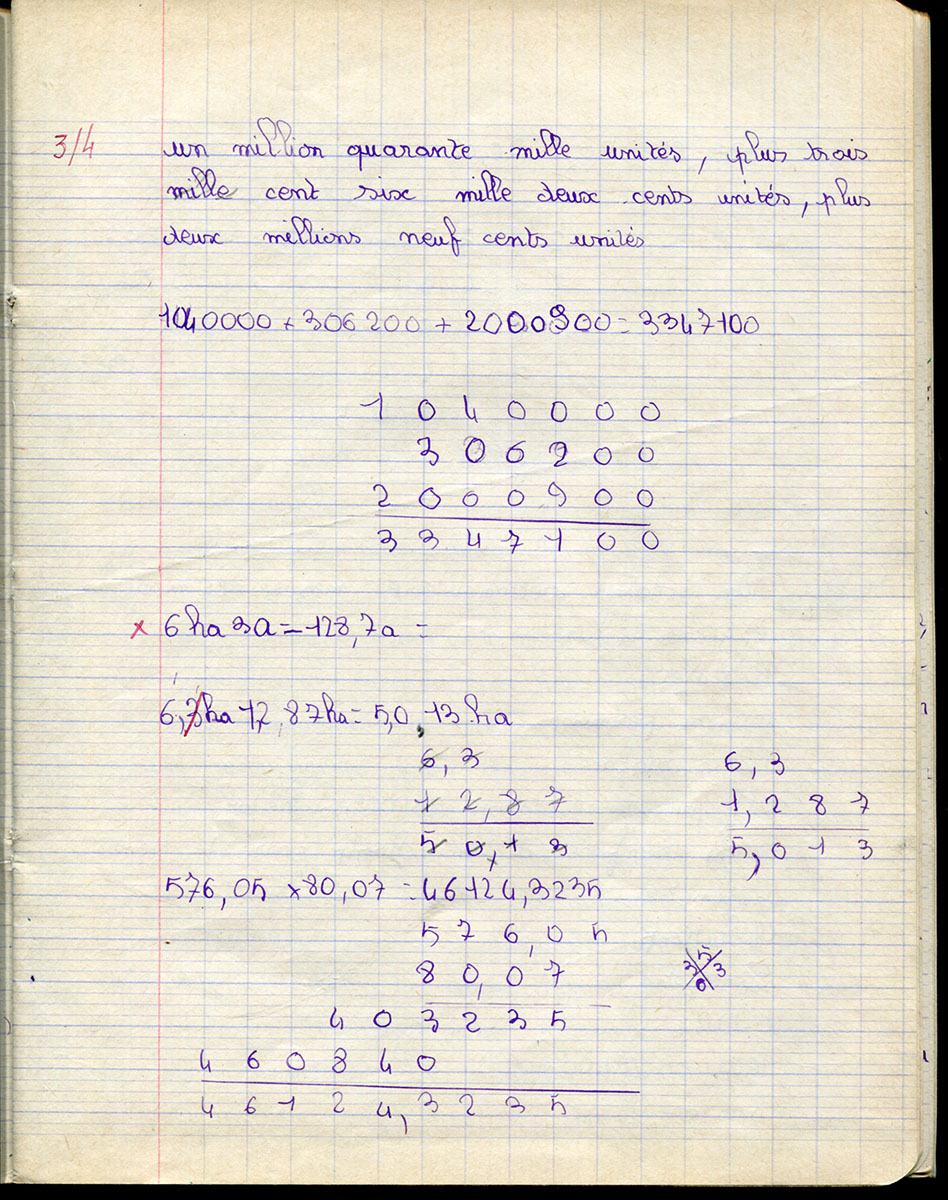 3/4
un million quarante mille unités, plus trois
mille cent six mille deux cents unités, plus
deux millions neuf cents unités
1040000 + 306200 + 2000900 = 3347100
1 0 4 0 0 0 0
3 0 6 2 0 0
2 0 0 0 9 0 0
3 3 4 7 1 0 0
x 6 ha 3a - 128,7a =
6,3ha 12,87ha = 50,13 ha
6,3
6,3
1 2,8 7
1,2 8 7
5 0,1 3
5,0 1 3
576,05 x 80,07 = 46124,3235
5 7 6,0 5
8 0,0 7
3 5 3 0
4 0 3 2 3 5
4 6 0 8 4 0
4 6 1 2 4,3 2 3 5